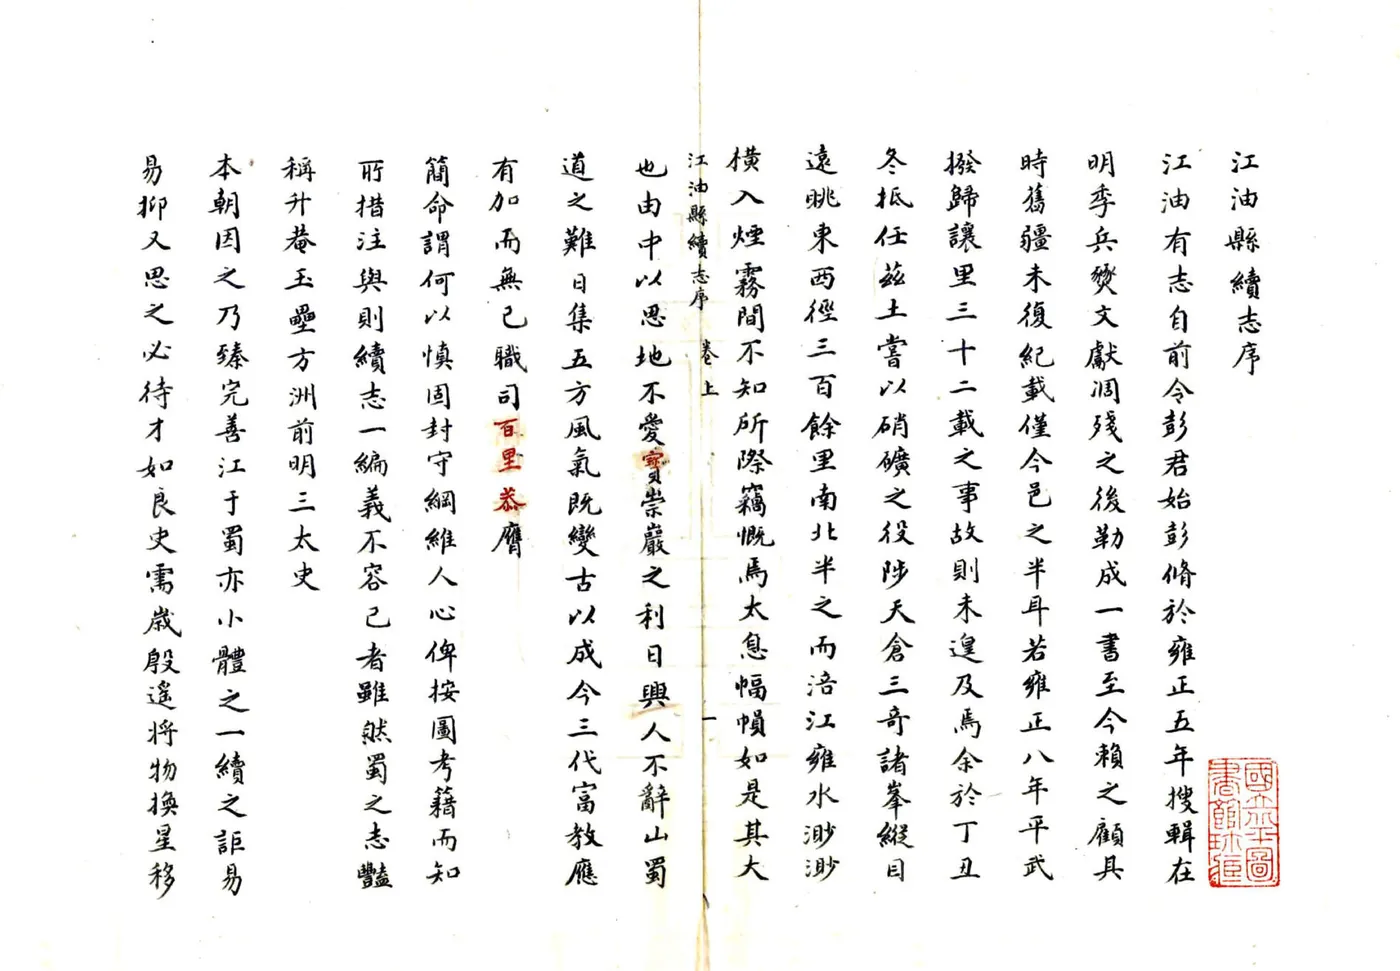 江油縣續志序
江油有志自前令彭君始彭脩於雍正五年搜輯在
明季兵燹文獻凋殘之後勒成一書至今賴之顧具
時舊疆未復紀載僅今邑之半耳若雍正八年平武
撥歸讓里三十二載之事故則未遑及焉余於丁丑
冬抵任茲土嘗以硝礦之役陟天倉三奇諸峯縱目
遠眺東西徑三百餘里南北半之而涪江雍水渺渺
橫入煙霧間不知所際竊慨焉太息幅幀如是其大
江油縣續志序 卷上 一
也由中以思地不愛寶崇巖之利日興人不辭山蜀
道之難日集五方風氣既變古以成今三代富教應
有加而無已職司百里恭膺
簡命謂何以慎固封守綱維人心俾按圖考籍而知
所措注與則續志一編義不容已者雖然蜀之志豔
稱升菴玉壘方洲前明三太史
本朝因之乃臻完善江于蜀亦小體之一續之詎易
易抑又思之必待才如良史需歲殷遙將物換星移
國立北平圖書館珍藏